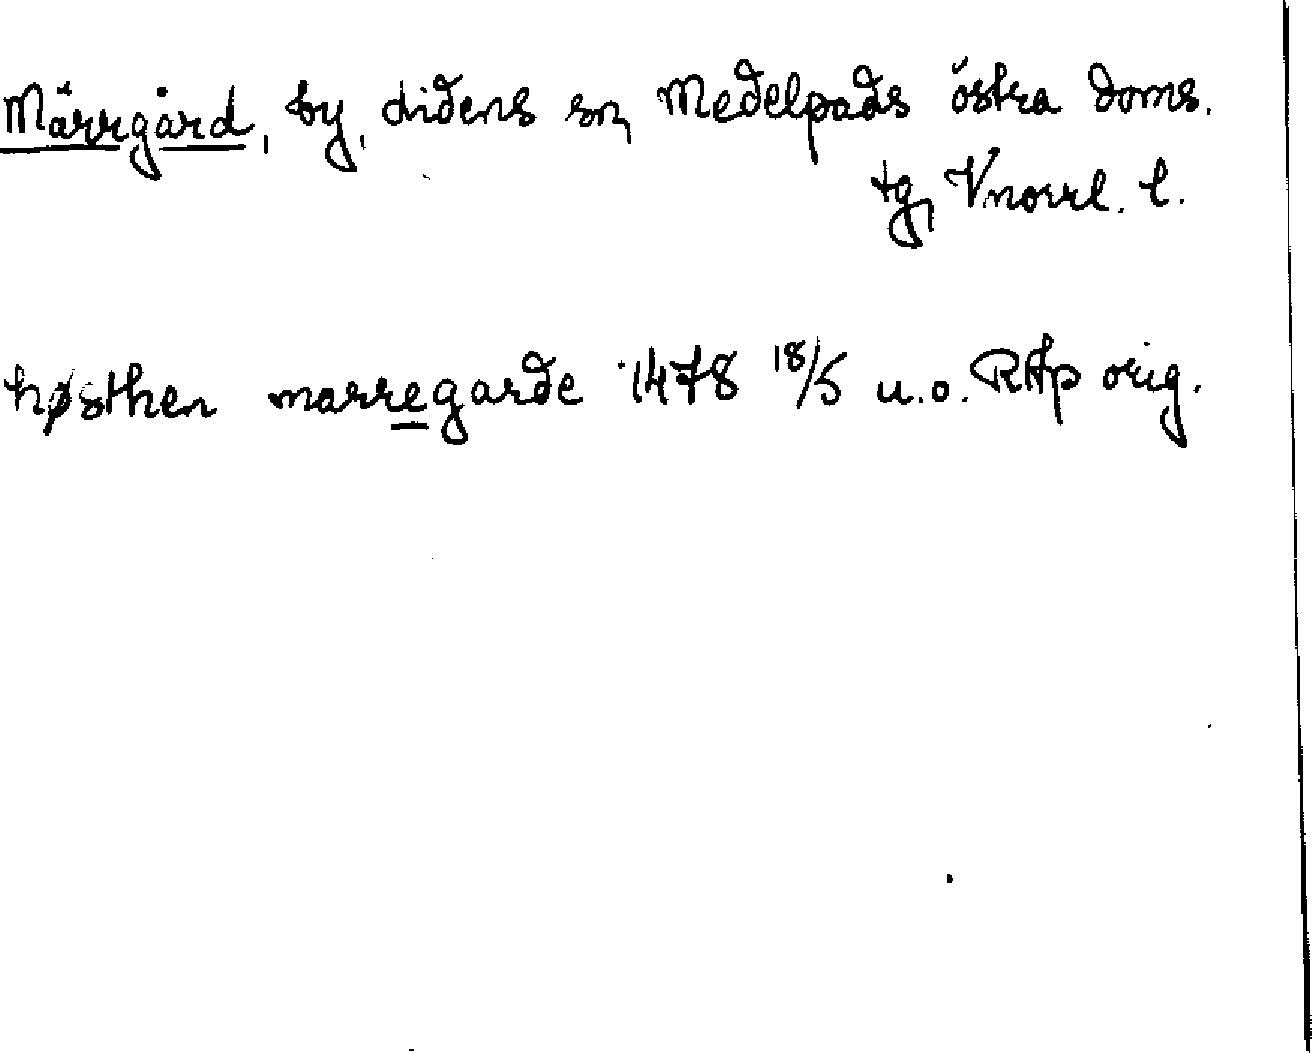 Märrgård, by, Lidens sn, Medelpads östra doms.
tg, Vnorrl. l.
høsthen marregarde 1478 18/5 u.o. RAp orig.